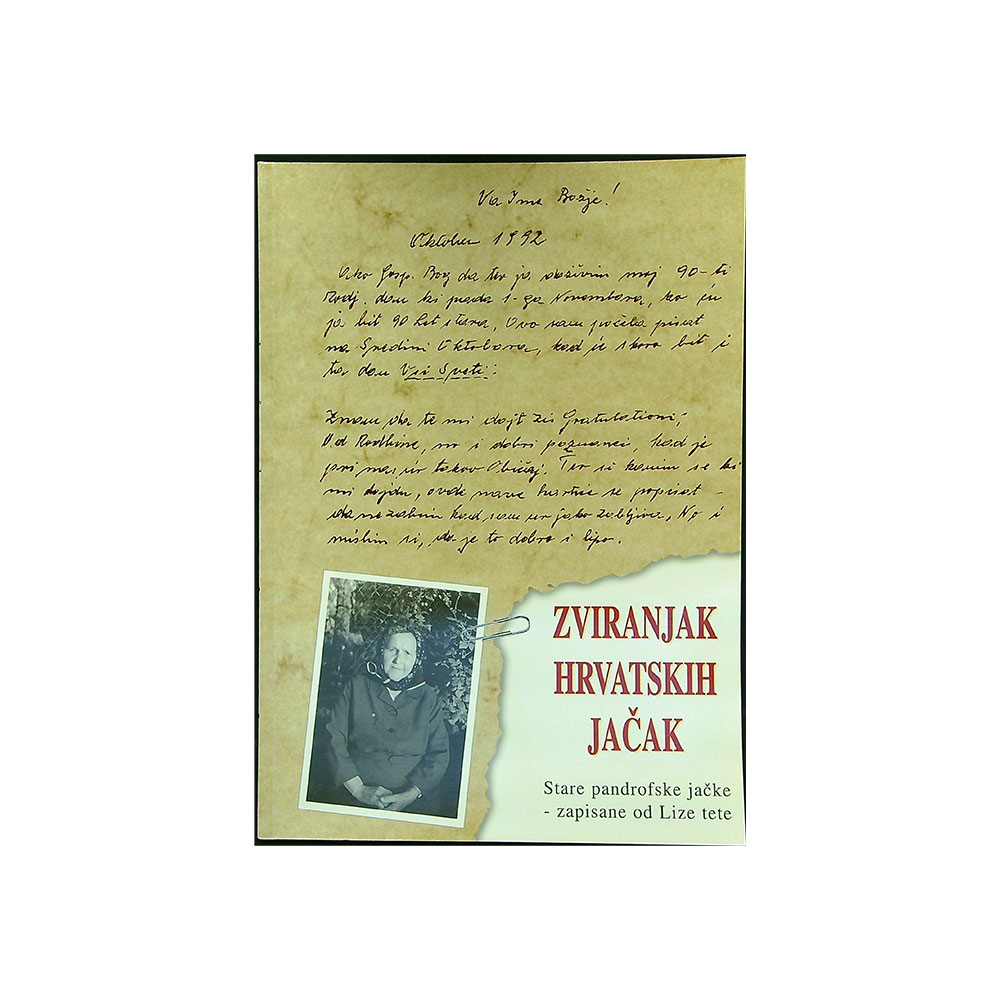 Va Ime Božje!
Oktober 1992
Ako Gosp. Bog da ter ja doživim moj 90-ti
Rodj. dan ki pada 1-ga Novembara, ko ću
ja bit 90 Let stara, Ovo sam počela pisat
na Sredini Oktobara, kad je skoro bit i
ta dan Vsi Sveti:
Znam da te mi dojt Gratulationi;
Od Rodbine, i dobri poznanci, kad je
pri nas takov Običaj. Ter si kanim se ki
mi dojdu, ovde se popisat -
da nezabim kad sam jako zabljiva, No i
mislim si, da je to dobro i lipo.
ZVIRANJAK
HRVATSKIH
JAČAK
Stare pandrofske jačke
- zapisane od Lize tete